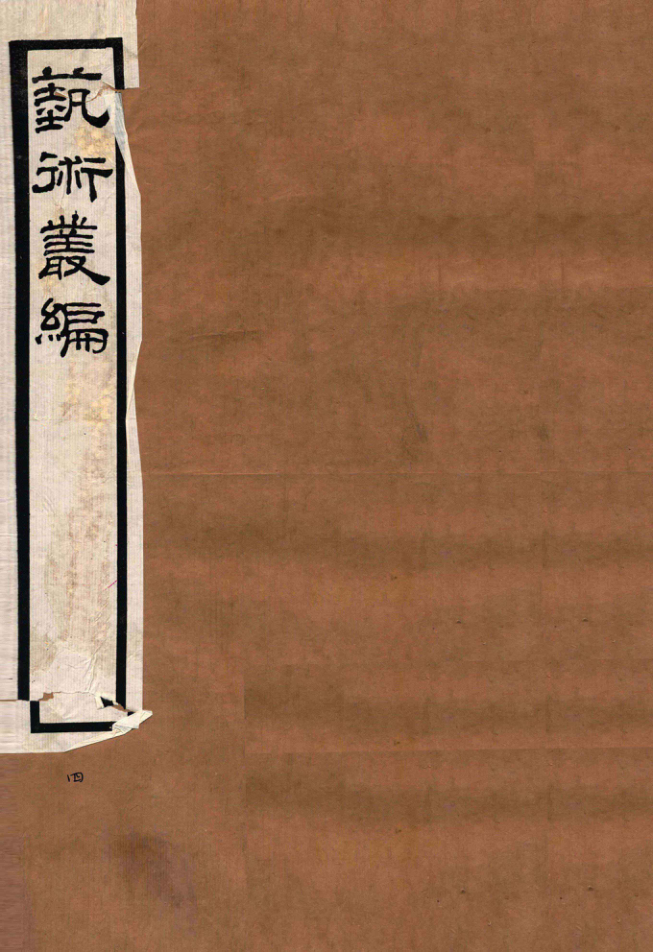 藝術叢編
四